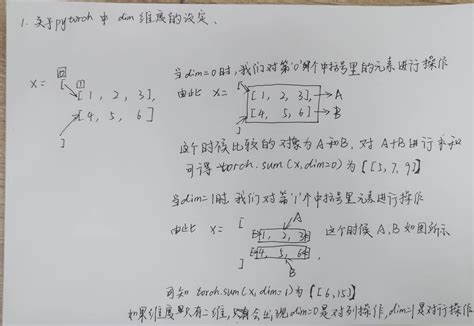 1. 关于pytorch 中 dim 维度的设定、
当dim=0时,我们对第'0'个中括号里的元素进行操作
0
1
x = [
[1, 2, 3],
[4, 5, 6]
]
由此 x = [
[1, 2, 3], → A
[4, 5, 6] → B
]
这个时候比较的对象为 A和B, 对 A+B 进行求和
可得 torch.sum(x,dim=0)为 [[5,7,9]]
当dim=1时 我们对第'1'个中括号里元素进行操作
A
由此 x = [
[1, 2, 3]
[4, 5, 6]
]
B
这个时候 A,B 如图所示
可知 torch.sum(x,dim=1)为 [[6,15]]
如果维度只有二维,只会出现dim=0是对列操作,dim=1是对行操作